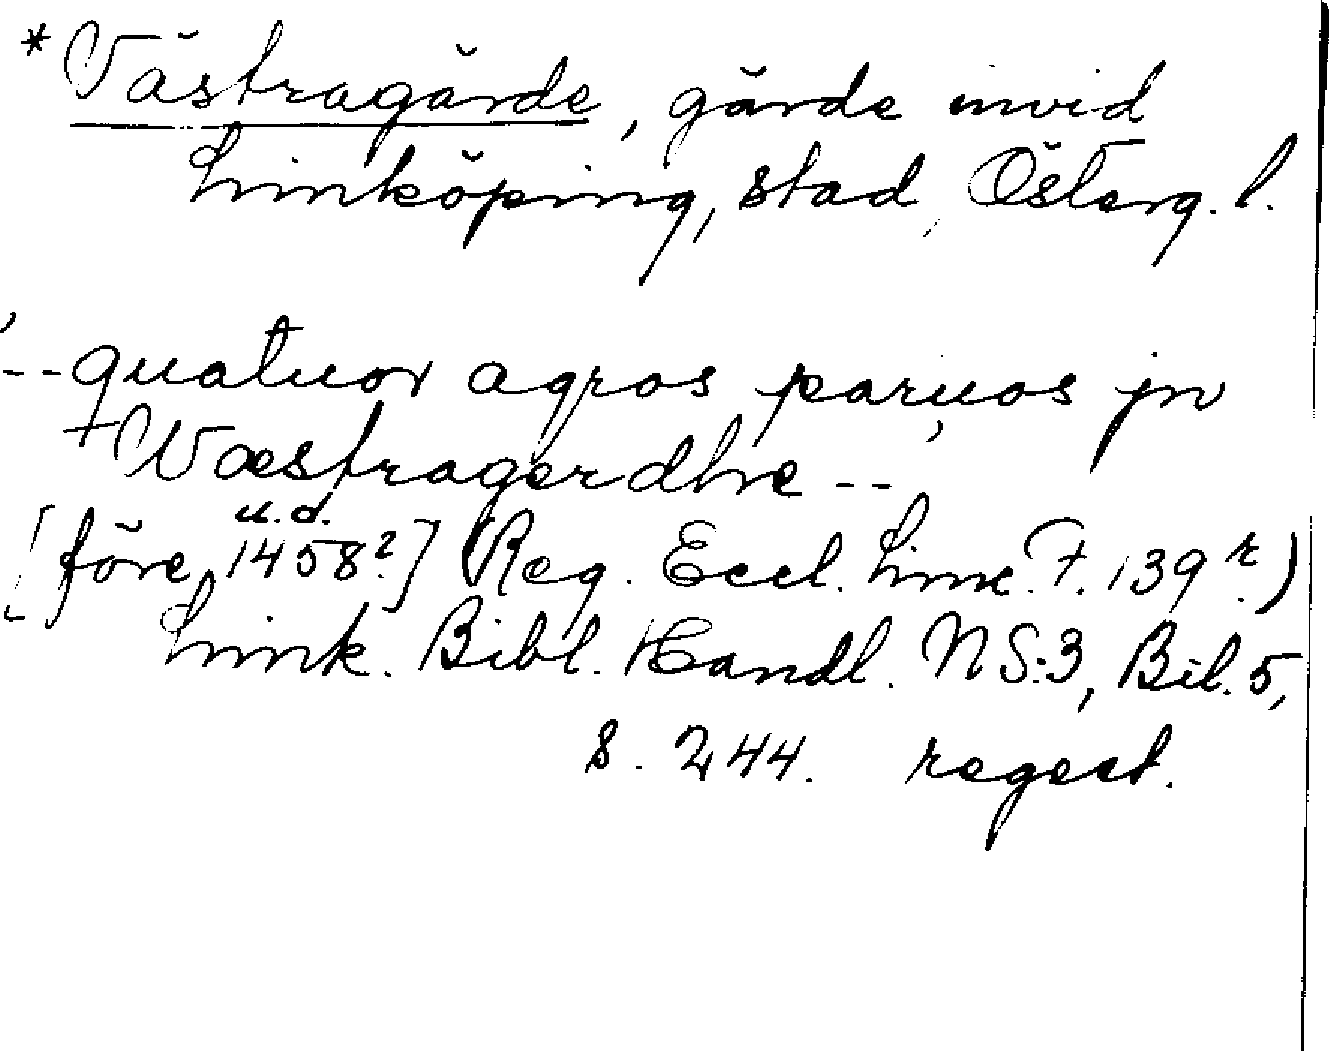 *Västragärde, gärde invid
Linköping, stad, Österg. l.
'-- quatuor agros paruos jn
+Wæstragerdhe --
u.d.
[före 1458?] Reg. Eccl. Linc. F. 139 r.)
Link. Bibl. Handl. NS:3, Bil. 5,
s. 244. regest.